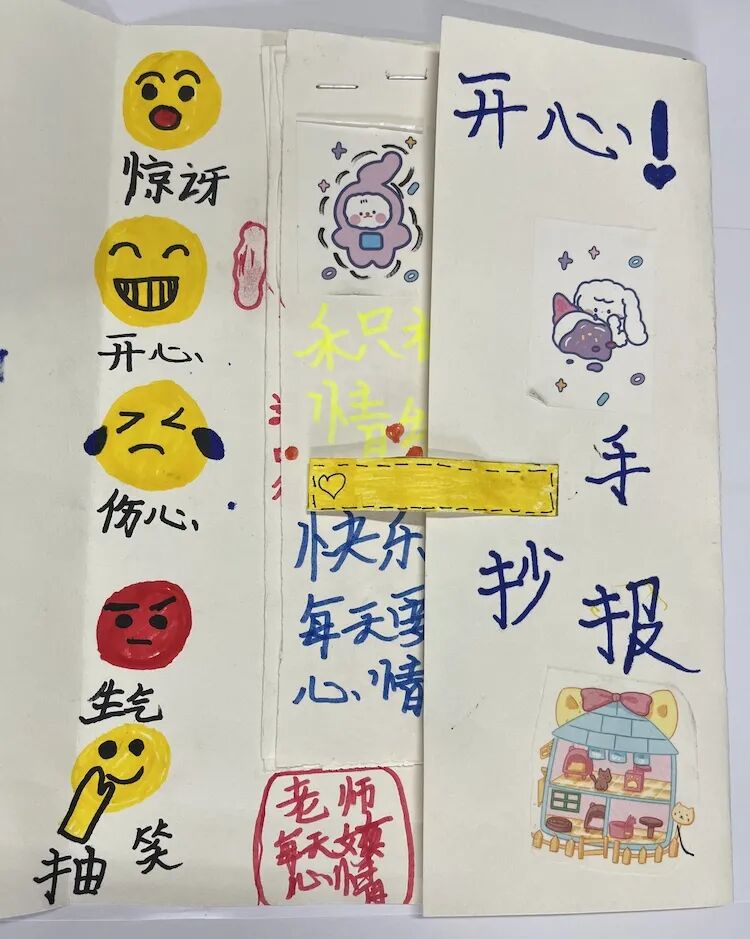 惊讶
开心
伤心
生气
抽笑
只
情
快乐
每天要
心情
老师
每天
心情
开心!
手
抄
报